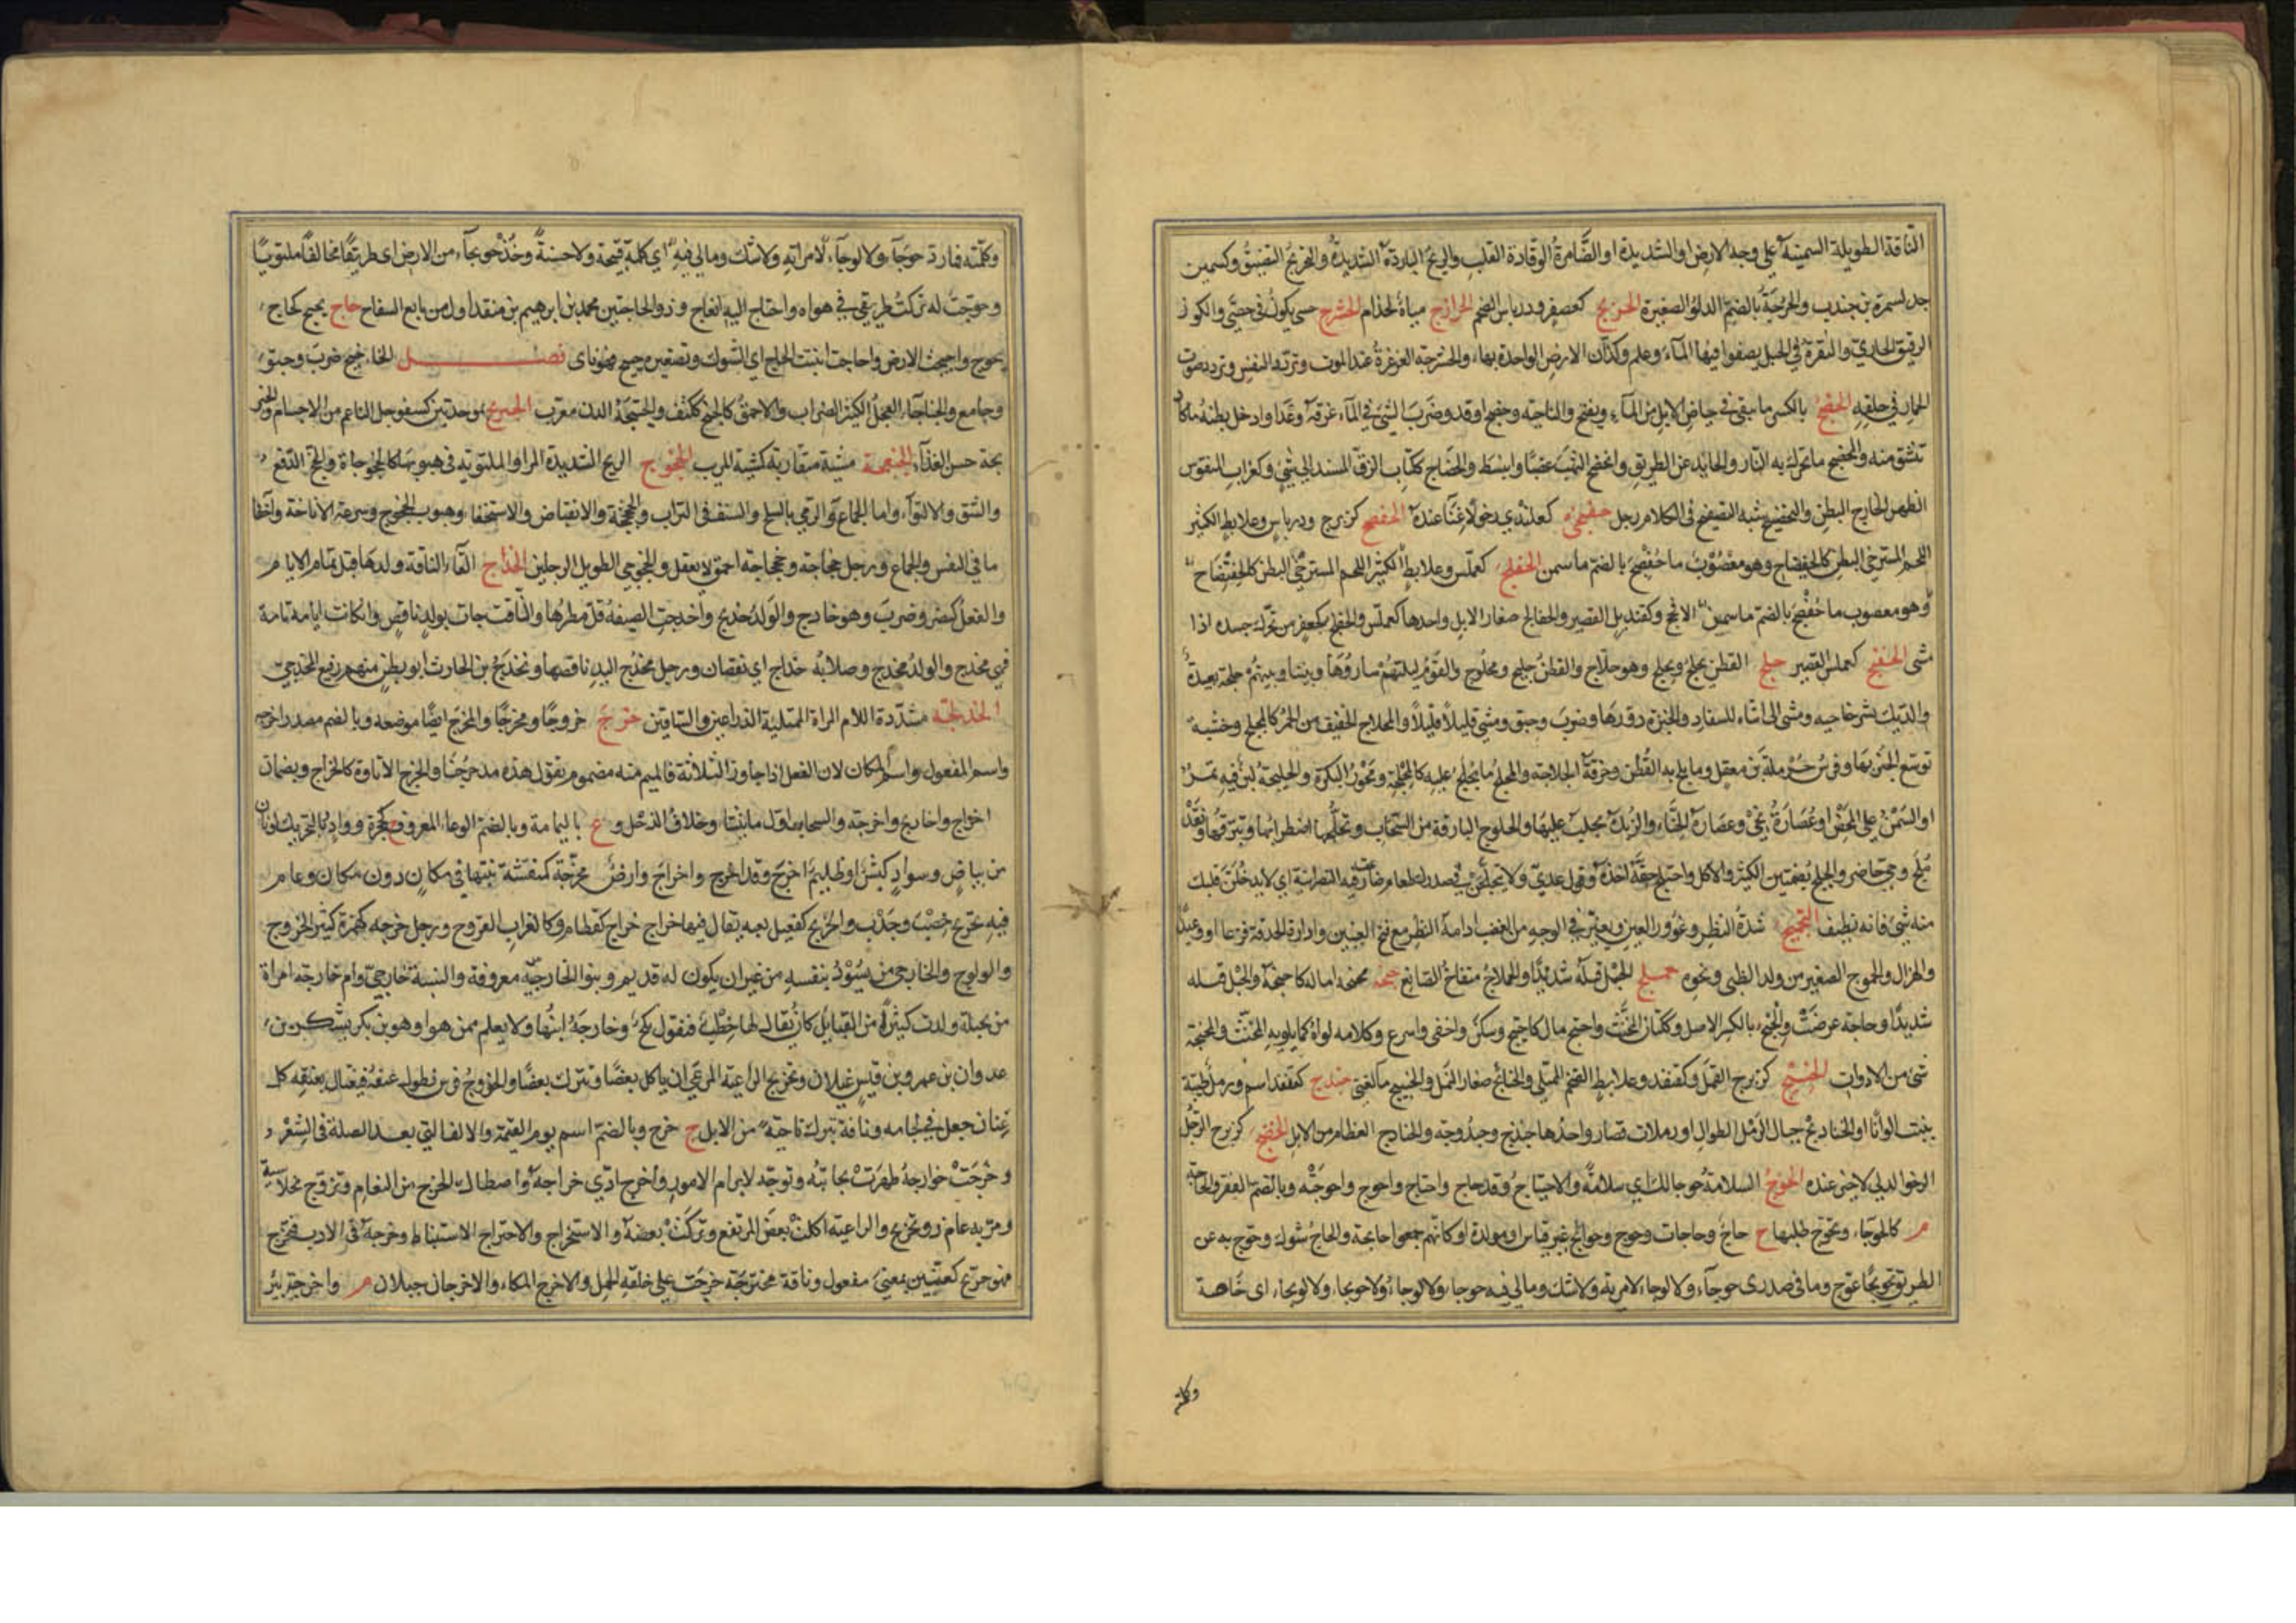 الناقة الطويلة السمينة على وجه الارض او الشديدة او الضامرة الوقادة القلب والريح الباردة الشديدة والخريج وكسمين
جد لسمرة بن جندب والحرجة بالضم الدلو الصغيرة كعصفر ودرباس الضم الحرازج مياه لجذام الحشرج حسى يكون فى حصى والكوز
الرقيق الحارى والنقرة فى الجبل يصفوا فيها الماء وعلم وكذان الارض الواحدة بهاء والحشرجة الغرغرة عند الموت وتردد النفس وتردد صوت
الحمار فى حلقه الحضج بالكسر ما يبقى فى حياض الابل من الماء ويفتح والناحية وحضج اوقد وضرب الشئ فى الماء غرقه وعدا وادخل بطنه ما كاد
تنشق منه والمحضج ما تحرك به النار والحايد عن الطريق وانحضج التهب غضبا وانبسط والحضاج ككتاب الزق المسند الى شئ وكغراب المنقوس
الظهر الخارج البطن والتحضيج شبه التضجيع فى الكلام رجل كعلندى رخو لا غناء عنده الحفضج كزبرج ودرباس وعلابط الكثير
اللحم المسترخى البطن كالحفضاج وهو معصوب ما حفضج بالضم ما سمن الحفلج كعملس وعلابط الكثير اللحم المسترخى البطن
وهو معصوب ما حفضج بالضم ما سمن الافحج وكقنديل القصير والحفالج صغار الابل واحدها كعملس والحفلج كجعفر من تحرك جسده اذا
مشى الحفنج كعملس القصير حلج القطن يحلج ويحلج وهو حلاج والقطن حليج ومحلوج والقوم ليلتهم ساروها وبيننا وبينهم حلجة بعيدة
والديك نشر جناحيه ومشى الى انثاه للسفاد والخبزة دورها وضرب وحبق ومشى قليلا قليلا والمحلاج الخفيف من الحمر كالمحلج وخشبة
توسع الخبز بها وفرس حرملة بن معقل وما يحلج به القطن وحرفة الحلاجة والمحلج ما يحلج عليه كالمحلجة ومحور البكرة والحليجة لبن فيه تمر
او السمن على المخض او عصارة نحى وعصارة الحناء والزبدة يحلب عليها والحلوج البارقة من السحاب وتحلجها اضطرابها وتبرقها ونقد
محلج وحى حاضر والحلج بضمتين الكثيرو الاكل واحتلج حقه اخذه وقول عدى ولا يتحلجن فى صدرك طعام ضارعت فيه النصرانية اى لا يدخلن قلبك
منه شئ فانه نظيف التحميج شدة النظر وغؤور العين وتغير فى الوجه من الغضب ادامة النظر مع فتح العينين وادارة الحدقة فزعا او وعيدا
والهزال والحموج الصغير من ولد الظبى ونحوه حملج الحبل فتله شديدا والحملاج منفاخ الصائغ حنجه يحنجه اماله كاحنجه والحبل فتله
شديدا وحاجة عرضت والحنج بالكسر الاصل وككتان المخنث واحنج مال كاحتنج وسكن واخفى واسرع وكلامه لواه كما يلويه المخنث والمحنجة
شئ من الادوات الحنبج كزبرج القمل وكقنفد وعلابط الضخم الممتلى والحنابج صغار النمل حندج كقنفد اسم ورملة طيبة
ينبت الوانا او الحناديج جبال الرمل الطوال او رملات قصار واحدها حندج وحندوجة والحنادج العظام من الابل الحنضج كزبرج الرجل
الرخو الذى لا خير عنده الحوج السلامة حوجا لك اى سلامة والاحتياج وقد حاج واحتاج واحوج واحوجته وبالضم الفقر والحاجة
م كالحوجاء وتحوج طلبها ج حاج وحاجات وحوج وحوائج غير قياس او مولدة او كانهم جمعوا حائجة والحاج شوك وحوج به عن
الطريق تحويجا عوج وما فى صدرى حوجاء ولا لوجاء لا مرية ولا شك ومالى فيه حوجاء ولا لوجاء ولا حويجاء ولا لويجاء اى حاجة
وكلمة
وكلمته فما رد حوجاء ولا لوجاء اى كلمة قبيحة ولا حسنة وخذ حويجاء من الارض اى طريقا مخالفا ملتويا
وحوجت له تركت طريقى فى هواه واحتاج اليه انعاج وذو الحاجتين محمد بن ابرهيم بن منقذ اول من بايع السفاح حاج يحيج كحاج
يحوج واحيجت الارض واحاجت انبتت الحاج اى الشوك وتصغيره حييج فهو ياى فصل الخاء خبج ضرب وحبق
وجامع والخباجاء الفحل الكثير الضراب والاحمق كالخبج ككتف والخنبجة الدن معرب الخبربج بموحدتين كسفرجل الناعم من الاجسام والخبر
بجة حسن الغذاء الخبعجة مشية متقاربة كمشية المريب الخجوج الريح الشديدة المر او الملتوية فى هبوبها كالخجوجاة والخج الدفع
والشق والالتواء والجماع والرمى بالسلح والنسف فى التراب والخجخجة والانقباض والاستخفاء وهبوب الخجوج وسرعة الاناخة واخفا
ما فى النفس والجماع ورجل خجاجة وخجخاجة احمق لا يعقل والخجوجى الطويل الرجلين الخداج القاء الناقة ولدها قبل تمام الايام
والفعل كنصر وضرب وهو خادج والولد خديج واخدجت الصيفة قل مطرها والناقة جات بولد ناقص وان كانت ايامه تامة
فهى مخدج والولد مخدج وصلاته خداج اى نقصان ورجل مخدج اليد ناقصها ومخدج بن الحارث ابو بطن منهم رفيع المخدجى
الخدلجة مشددة اللام المراة الممتلية الذراعين والساقين خرج خروجا ومخرجا والمخرج ايضا موضعه وبالضم مصدر اخرجه
واسم المفعول واسم المكان لان الفعل اذا جاوز الثلاثة فالميم منه مضموم تقول هذا مدحرجنا والخرج الاتاوة كالخراج ويضمان
اخراج واخاريج واخرجة والسحاب اول ما ينشا وخلاف الدخل و ع باليمامة وبالضم الوعاء المعروف ج كجحرة وواد وبالتحريك لونان
من بياض وسواد كبش او ظليم اخرج وقد اخرج واخراج وارض مخرجة كمنقشة نبتها فى مكان دون مكان وعام
فيه تخريج خصب وجدب والخريج كقتيل لعبة يقال فيها خراج خراج كقطام وكالغراب القروح ورجل خرجة كهمزة كثير الخروج
والولوج والخارجى من يسود بنفسه من غير ان يكون له قديم وبنو الخارجية معروفة والنسبة خارجى وام خارجة امراة
من بجيلة ولدت كثيرا من القبائل كان يقال لها خطب فتقول نكح وخارجة ابنها ولا يعلم ممن هو او هو بن بكر بن يشكر بن
عدوان بن عمرو بن قيس عيلان وتخريج الراعية المرعى ان ياكل بعضا وتترك بعضا والخروج فرس يطول عنقه فيغتال بعنقه كل
عنان جعل فى لجامه وناقة تبرك ناحية من الابل ج خرج وبالضم اسم يوم القيمة والالف التى بعد الصلة فى الشعر و
وخرجت خوارجه ظهرت نجابته وتوجه لابرام الامور واخرج ادى خراجه واصطاد الخرج من النعام وتزوج بخلاسية
ومر به عام ذو تخريج والراعية اكلت بعض المرتع وتركت بعضه والاستخراج والاختراج الاستنباط وخرجه فى الادب فتخرج
فهو خريج كعنين بمعنى مفعول وناقة مخترجة خرجت على خلقة الجمل والاخرج المكاء والاخرجان جبلان م واخرجة بئر